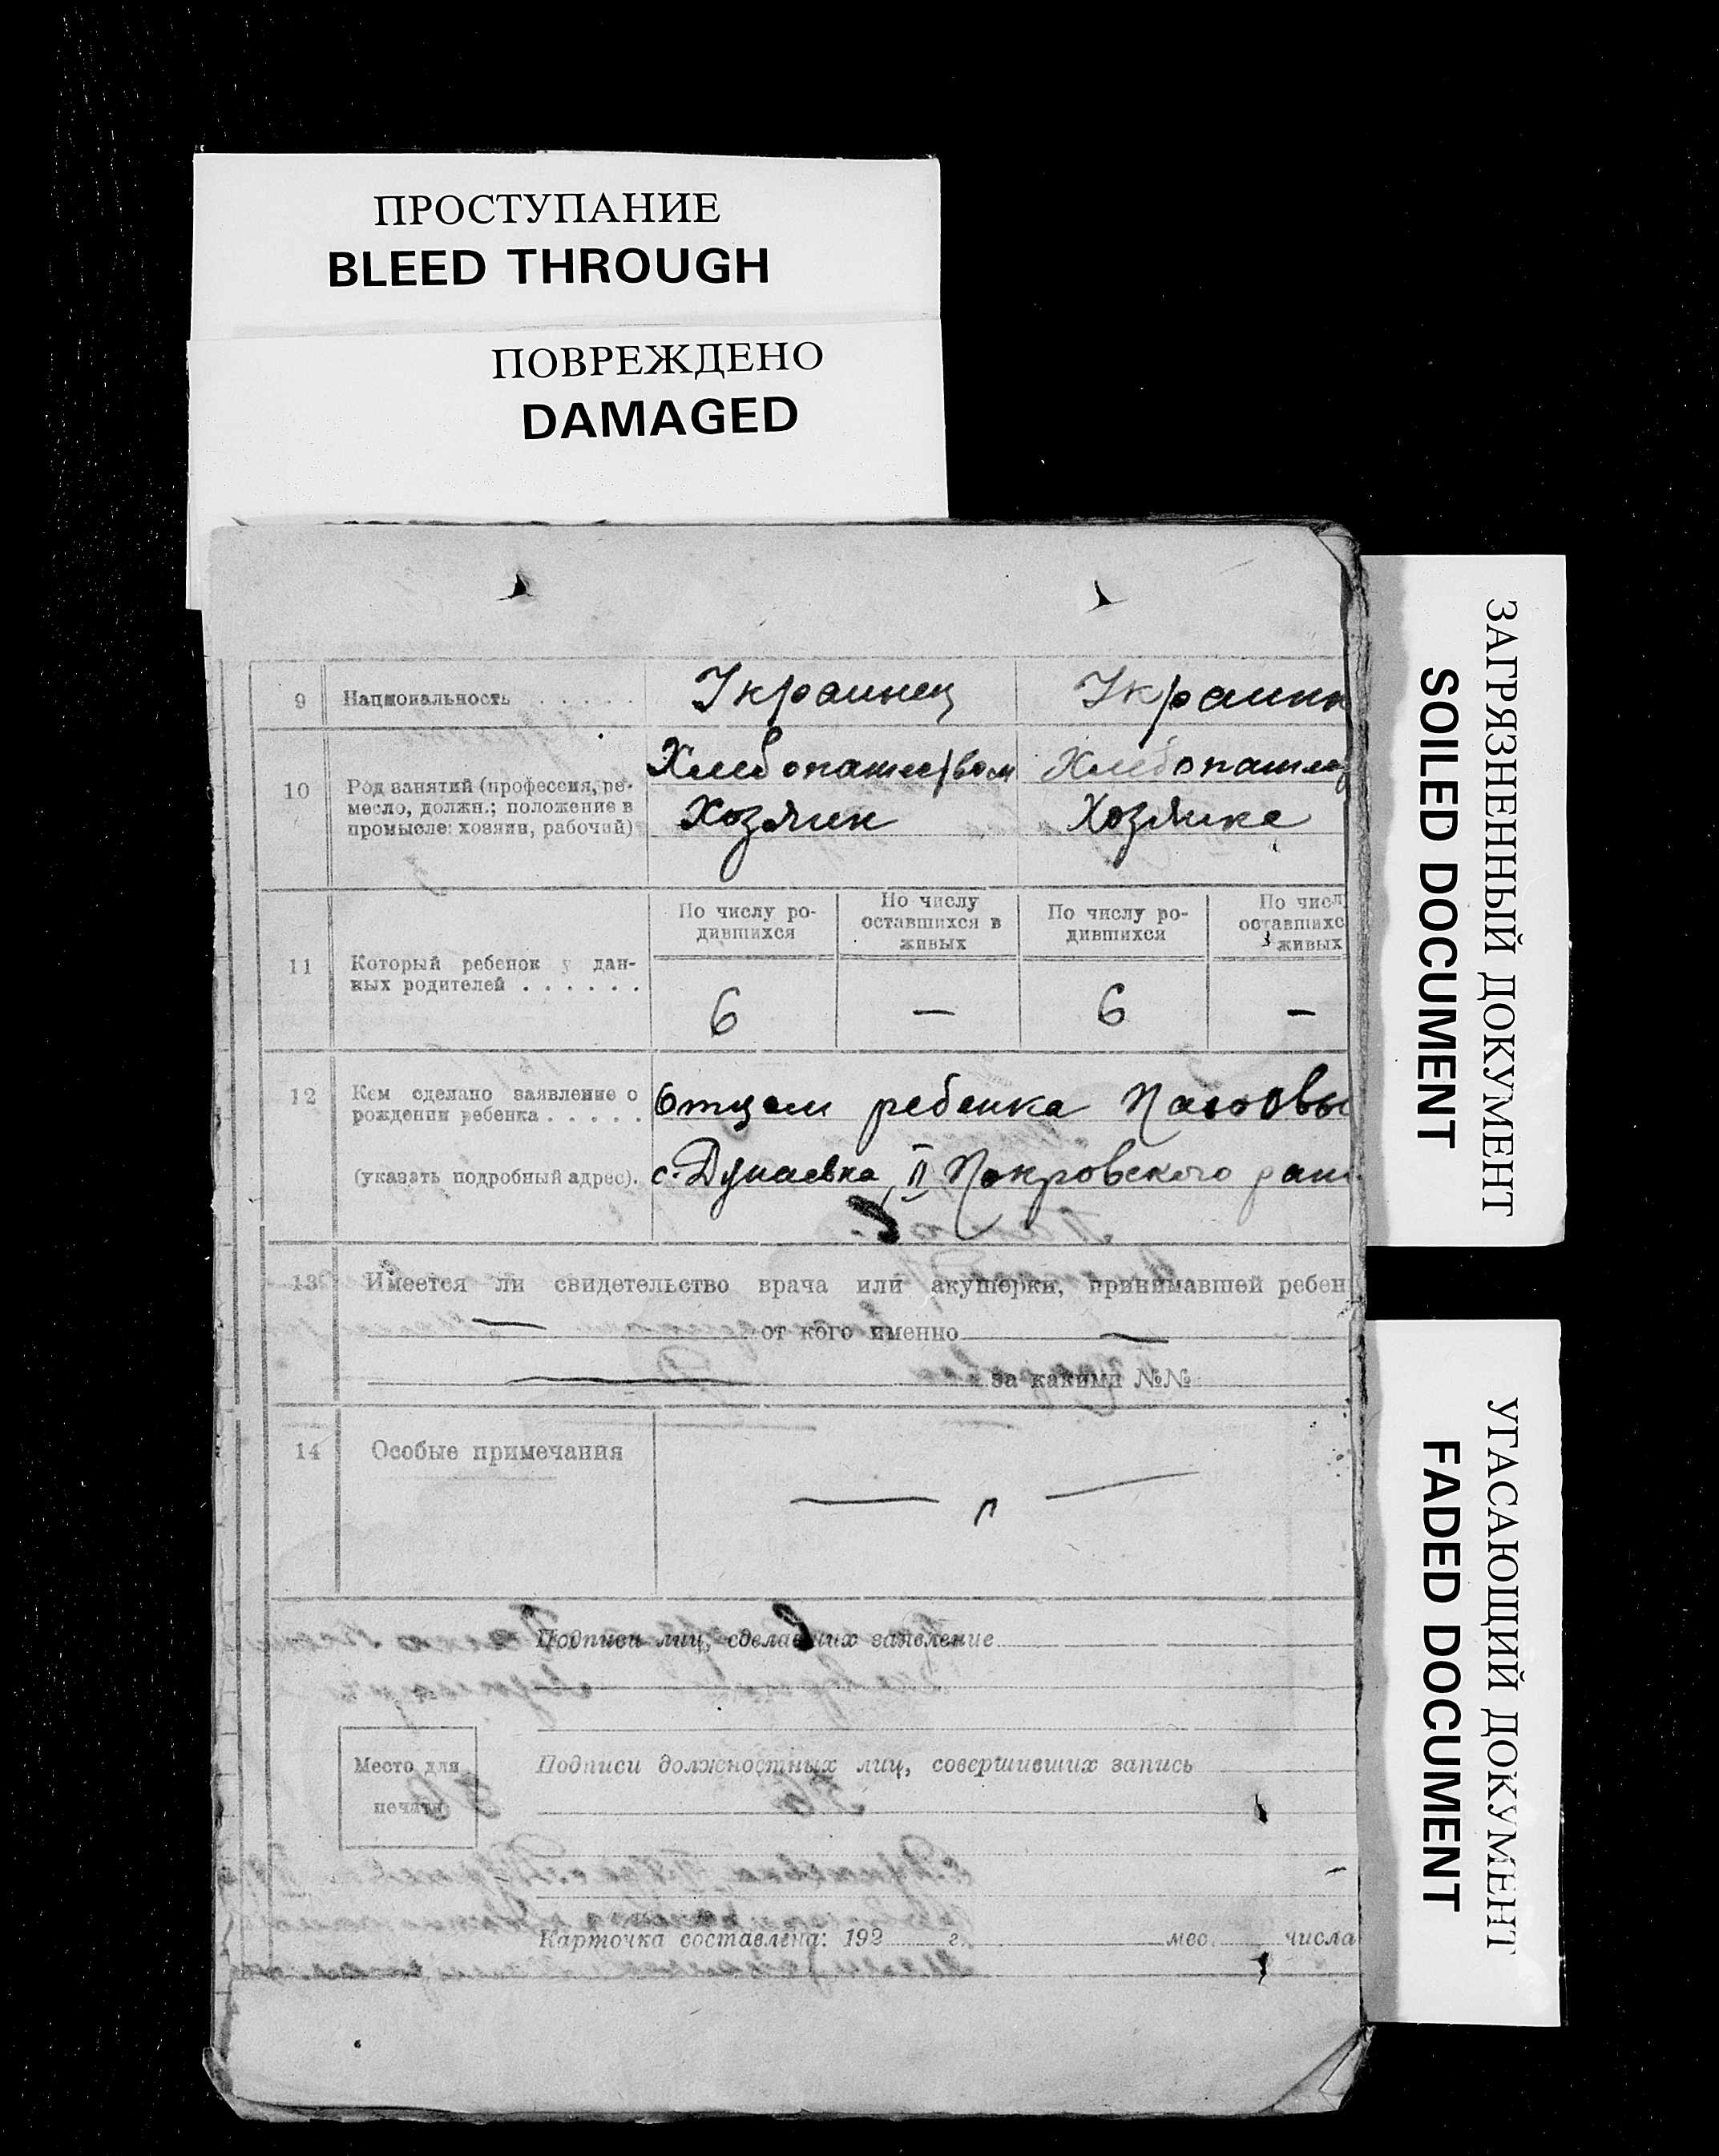 ПРОСТУПАНИЕ
BLEED THROUGH
ПОВРЕЖДЕНО
DAMAGED
ЗАГРЯЗНЕННЫЙ ДОКУМЕНТ
SOILED DOCUMENT
УГАСАЮЩИЙ ДОКУМЕНТ
FADED DOCUMENT
9 Национальность . . . . . Украинец Украинк
10 Род занятий (профессия, ре-
месло, должн.; положение в
промысле: хозяин, рабочий)
Хлебопашеством Хлебопаш
Хозяин Хозяйка
По числу ро-
дившихся
По числу
оставшихся в
живых
По числу ро-
дившихся
По числ
оставшихс
живых
11 Который ребенок у дан-
ных родителей . . . . . .
6 — 6 —
12 Кем сделано заявление о
рождении ребенка . . . . .
(указать подробный адрес).
Отцом ребенка
с. Дунаевка, II Покровского
13 Имеется ли свидетельство врача или акушерки, принимавшей ребен
— от кого именно —
— за каким №№
14 Особые примечания
— „ —
Подписи лиц, сделавших заявление
Место для
печати
Подписи должностных лиц, совершивших запись
Карточка составлена: 192 г. мес. числа